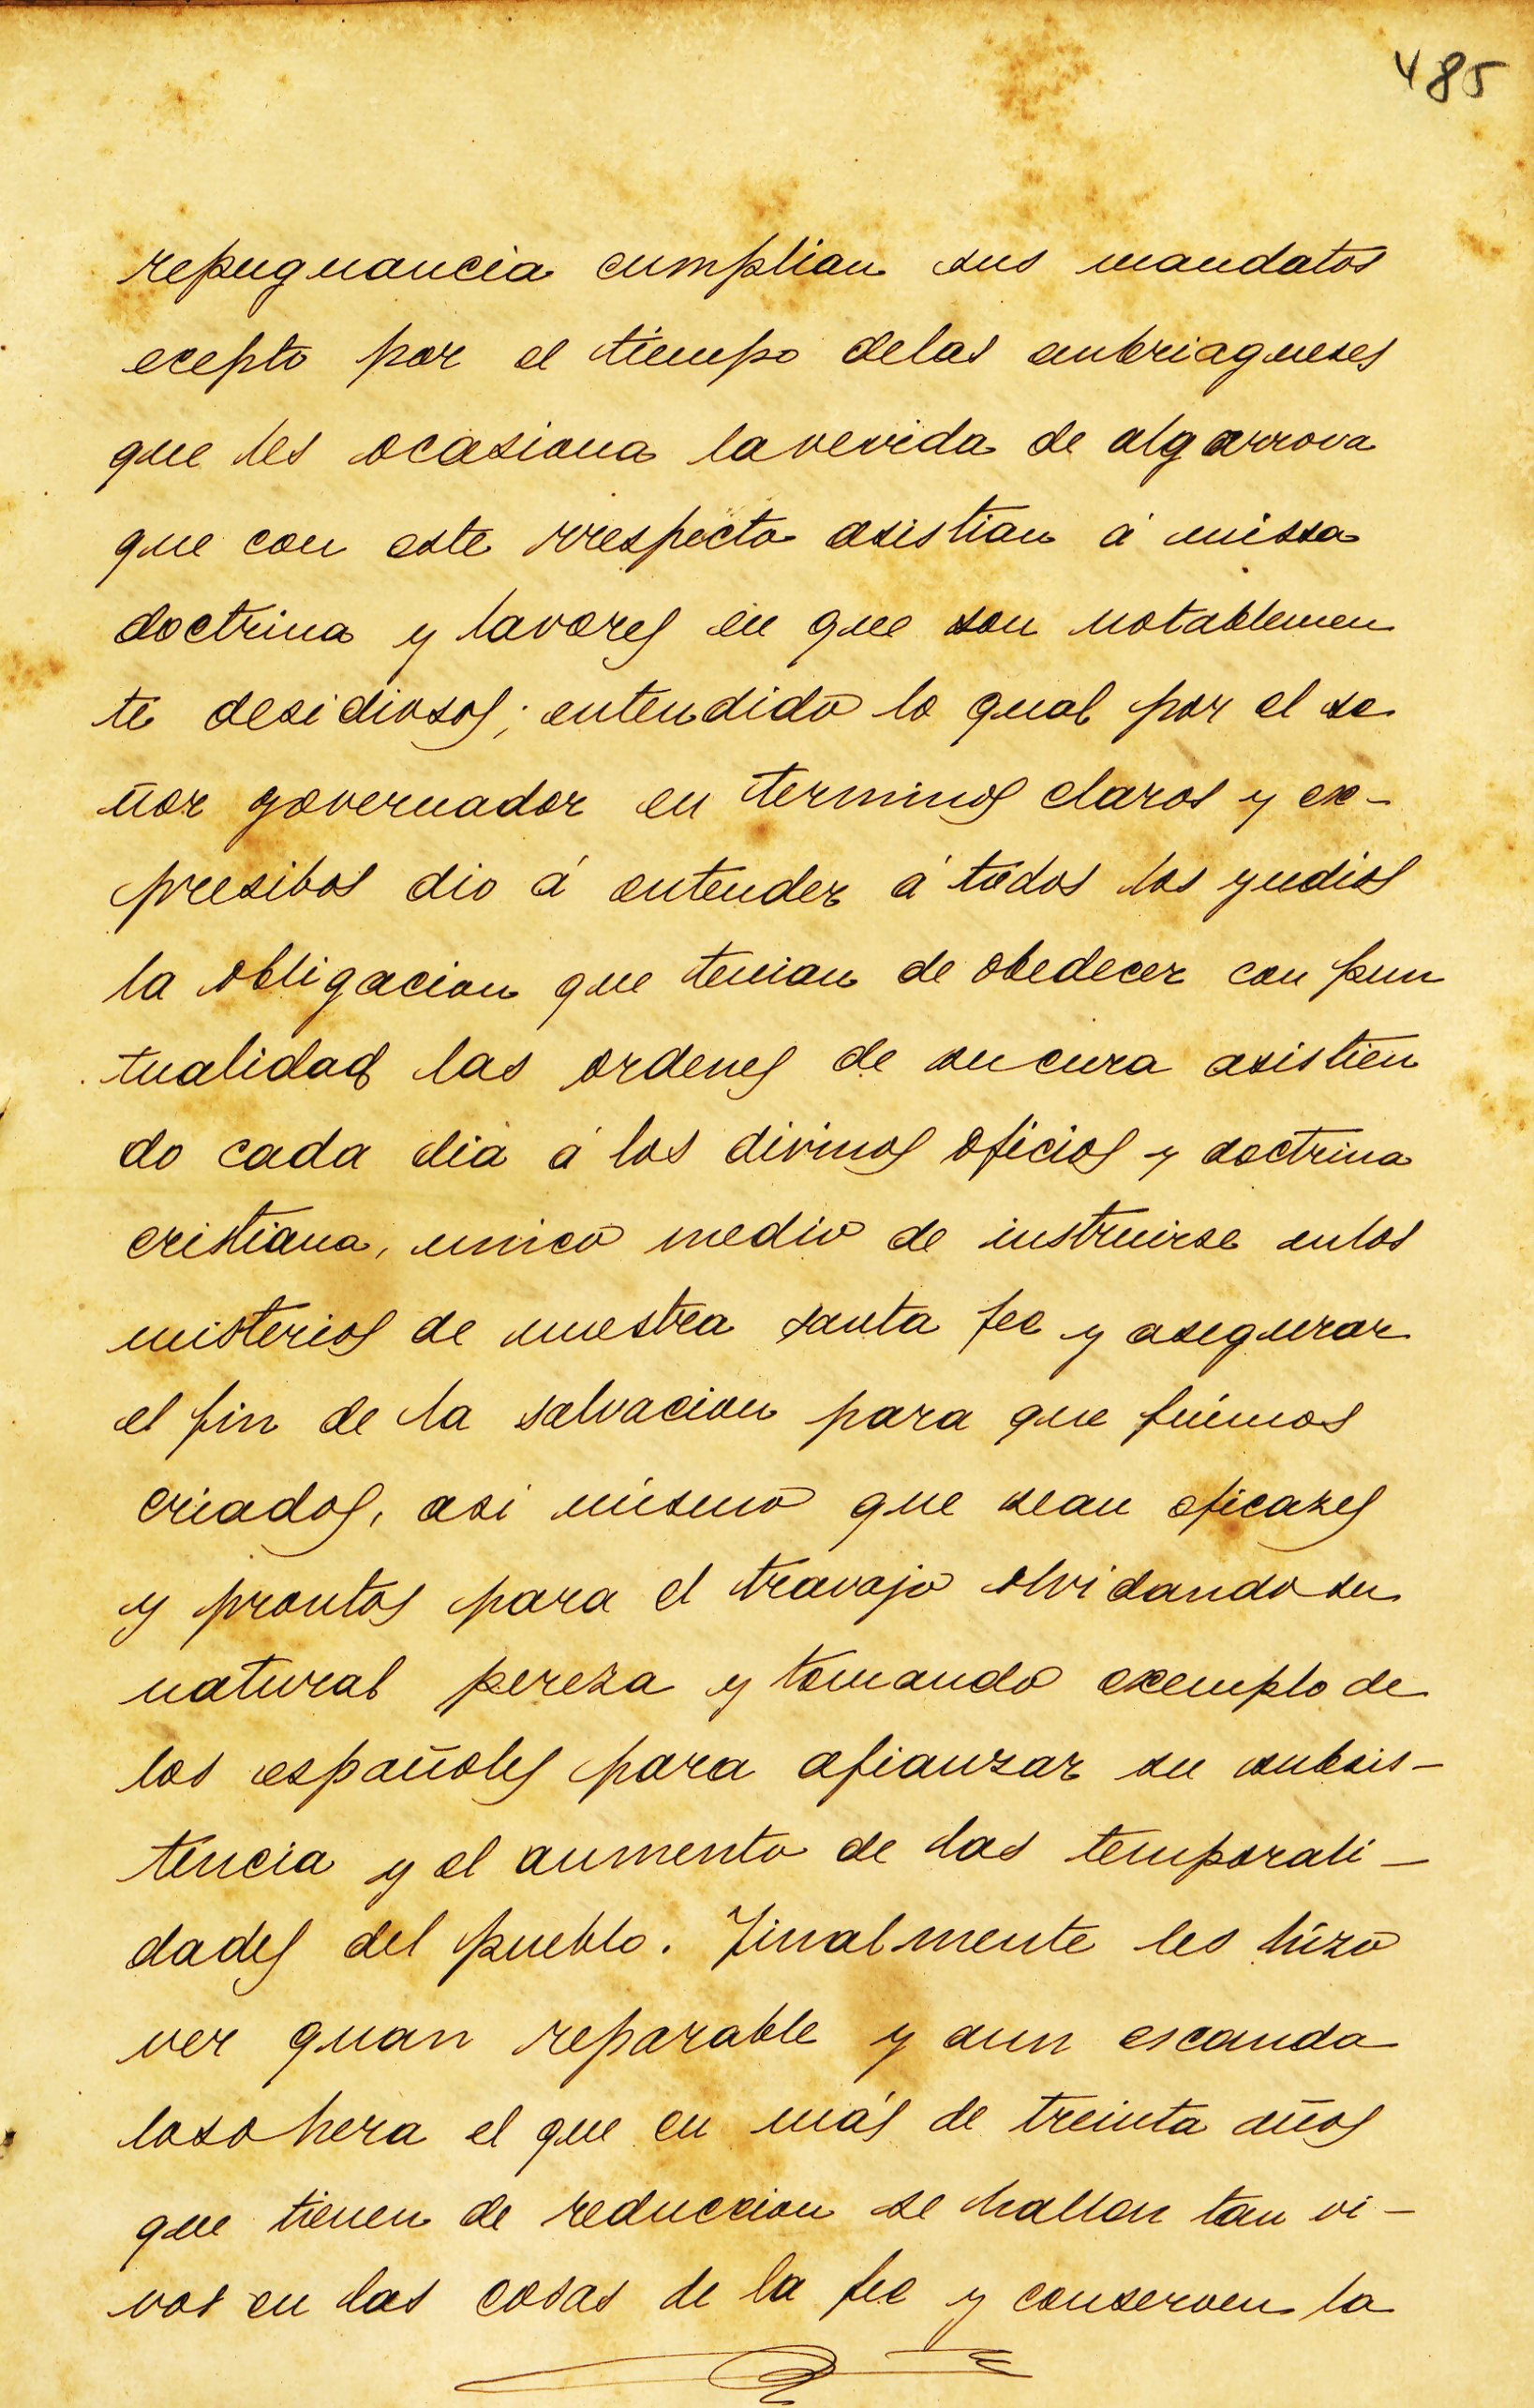 485
repugnancia cumplian sus mandatos
ecepto por el tiempo delas enbriagueses
que les ocasiona lavevida de algarrova
que con este rrespecto asistian á missa
doctrina y lavores en que son notablemen
te desidiosos; entendido lo qual por el se
ñor governador en terminos claros y ex-
presibos dio á entender á todos los yndios
la obligacion que tenian de obedecer con pun
tualidad las ordenes de su cura asistien
do cada dia á los divinos oficios y doctrina
cristiana, unico medio de instruirse enlos
misterios de nuestra santa fee y asegurar
el fin de la salvacion para que fuimos
criados, asi mismo que sean eficazes
y prontos para el travajo olvidando su
natural pereza y tomando exemplo de
los españoles para afianzar su subsis-
tencia y el aumento de las temporali-
dades del pueblo. Finalmente les hizo
ver quan reparable y aun escanda
loso hera el que en más de treinta años
que tienen de reduccion se hallan tan vi-
vos en las cosas de la fee y conserven la